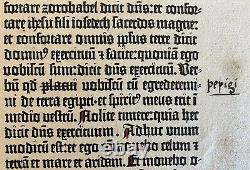 fortare zorobabel dicit dn̄s: et confor
tare ih̄su fili iosedech sacerdos magne:
et confortare omnis pp̄lus terre dicit
dominꝰ exercituū et facite: quoniā ego
vobiscū sum: dicit dn̄s exercituū. Ver-
bū qd̄ placui vobiscū cū egrederemi-
pepigi
ni de terra egipti: et spiritꝰ meus erit ī
medio vestrū. Nolite timere: quia hec
dicit dn̄s exercituum. Adhuc unum
modicū est: et ego celum et
terrā et mare et aridā. Et movebo o